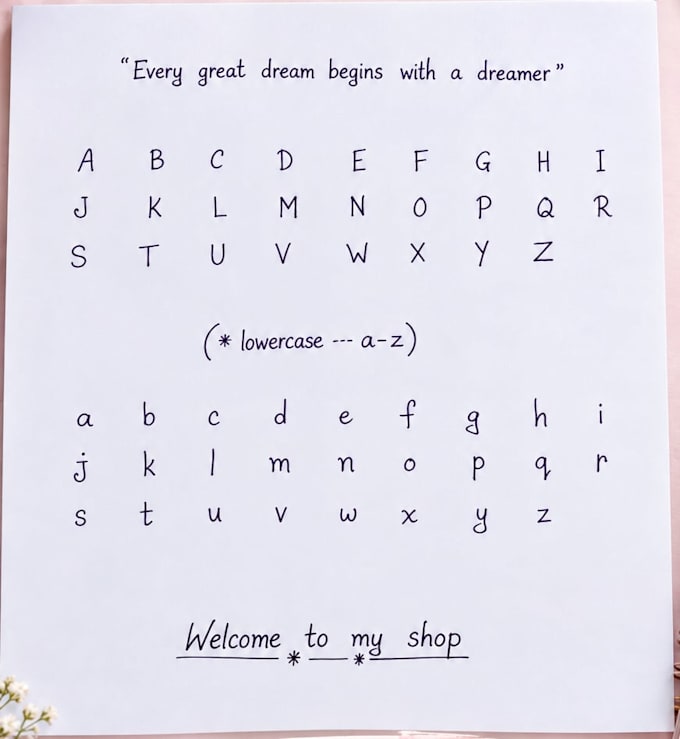 “Every great dream begins with a dreamer”
A B C D E F G H I
J K L M N O P Q R
S T U V W X Y Z
(* lowercase --- a-z)
a b c d e f g h i
j k l m n o p q r
s t u v w x y z
Welcome to my shop